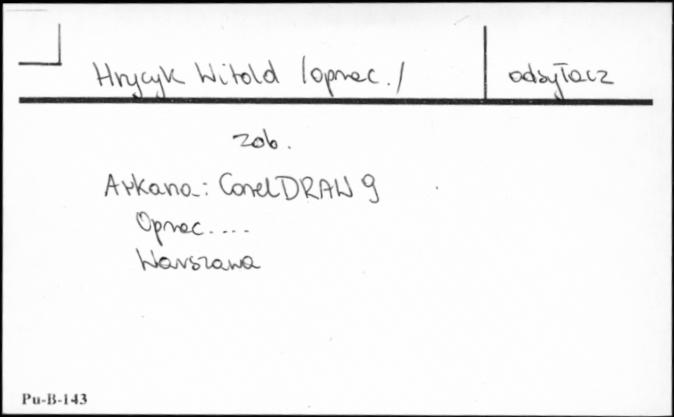 Hrycyk Witold /oprac./ odsyłacz
zob.
Arkana: CorelDRAW 9
Oprac....
Warszawa
Pu-B-143